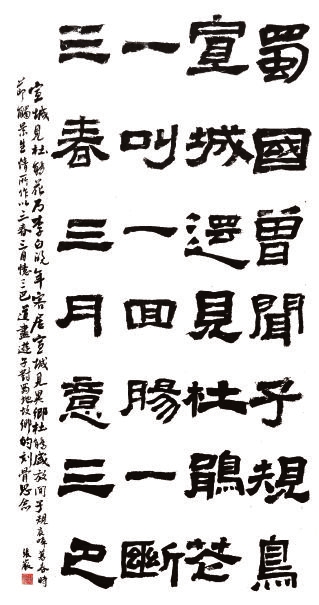 蜀國曾聞子規鳥
宣城還見杜鵑花
一叫一回腸一斷
三春三月意三巴
宣城見杜鵑花乃李白晚年客居宣城見異鄉杜鵑盛放聞子規哀啼暮春時
節觸景生情所作以三春三月憶三巴道盡遊子對蜀地故鄉的刻骨思念